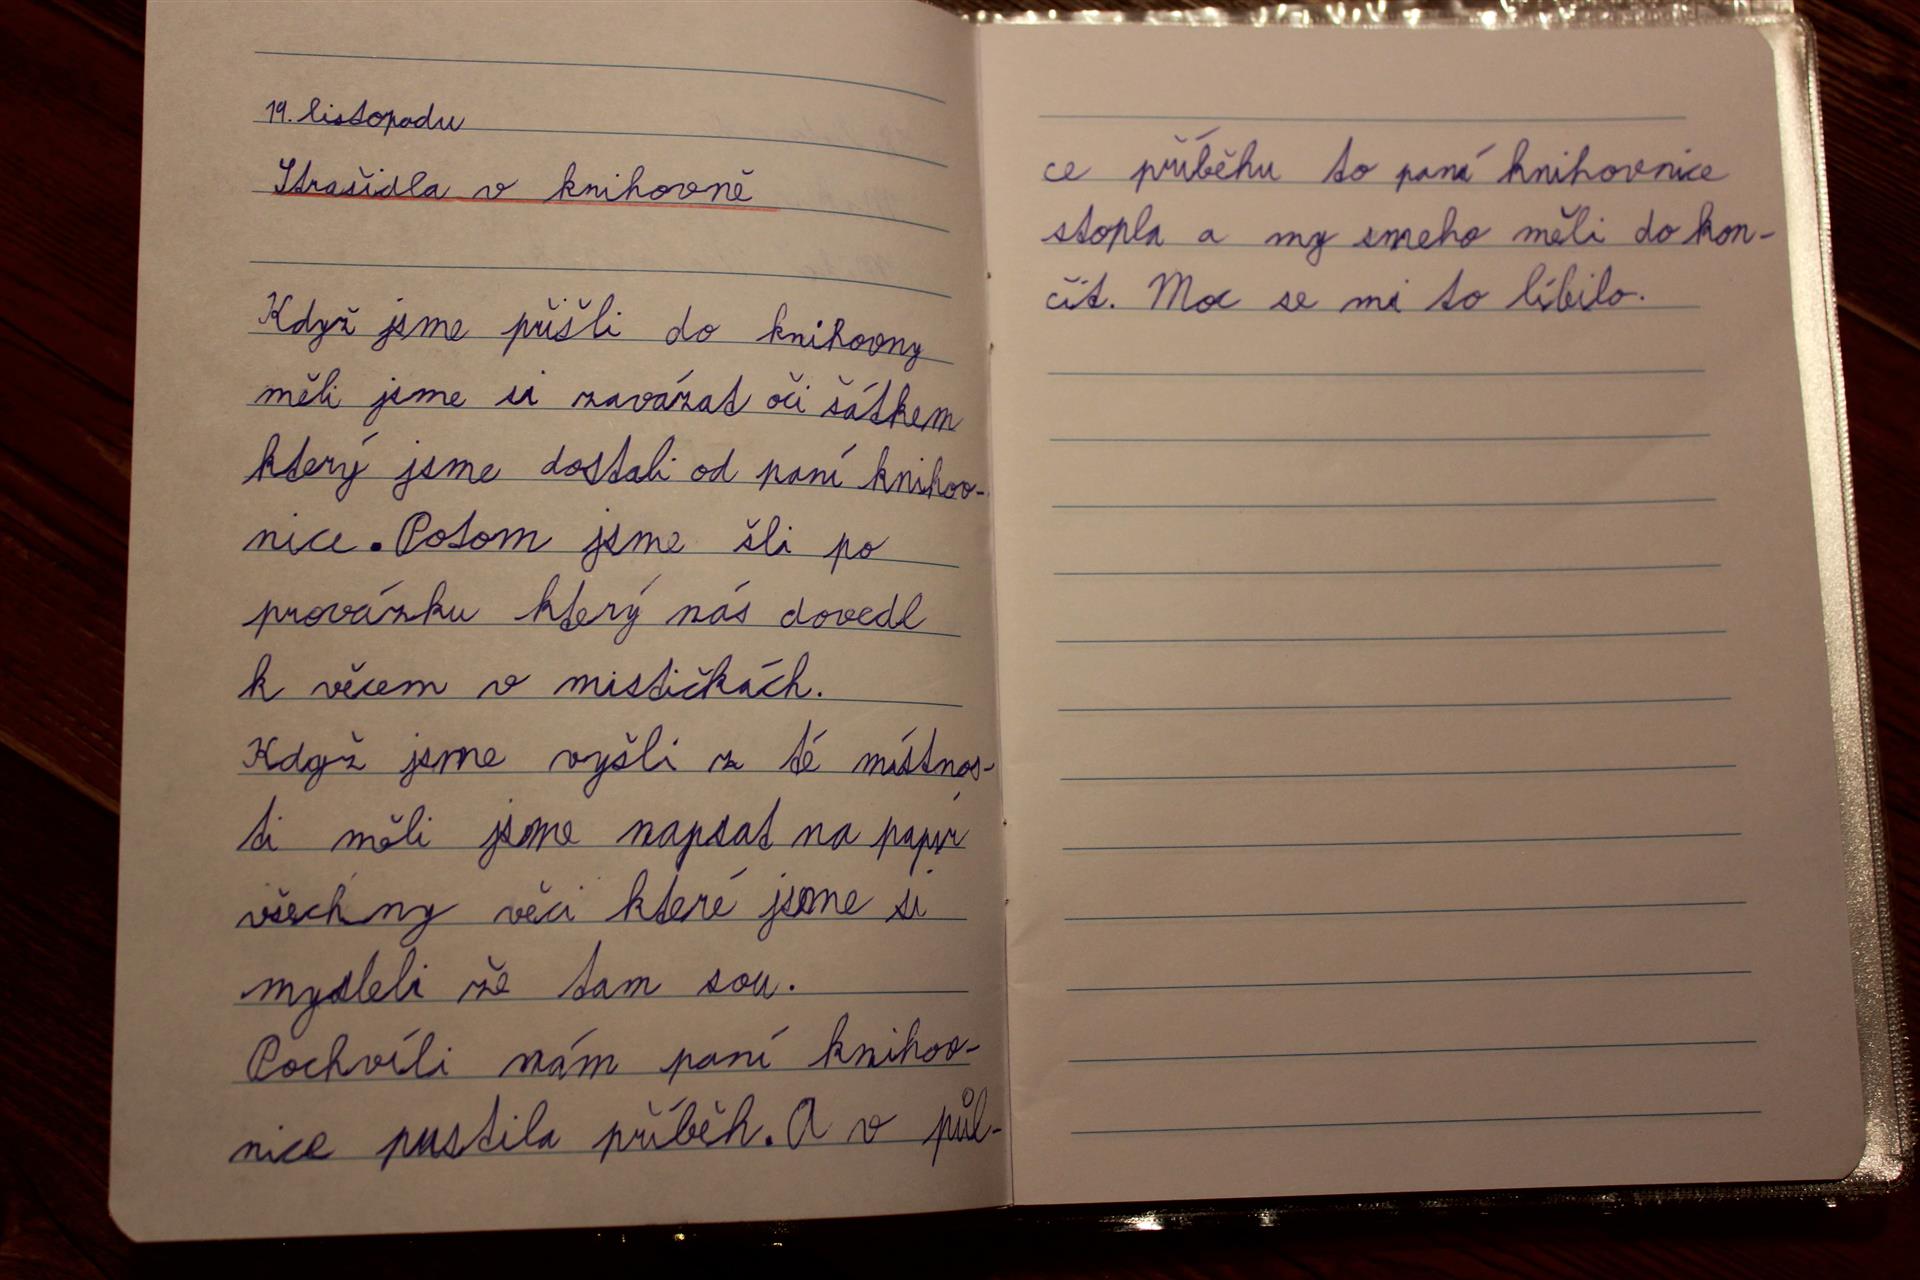 19. listopadu
Strašidla v knihovně
Když jsme přišli do knihovny
měli jsme si zavázat oči šátkem
který jsme dostali od paní knihov-
nice. Potom jsme šli po
provázku který nás dovedl
k věcem v mističkách.
Když jsme vyšli z té místnos-
ti měli jsme napsat na papír
všechny věci které jsme si
mysleli že tam sou.
Pochvíli nám paní knihov-
nice pustila příběh. A v půl-
ce příběhu to paní knihovnice
stopla a my smeho měli do kon-
čit. Moc se mi to líbilo.